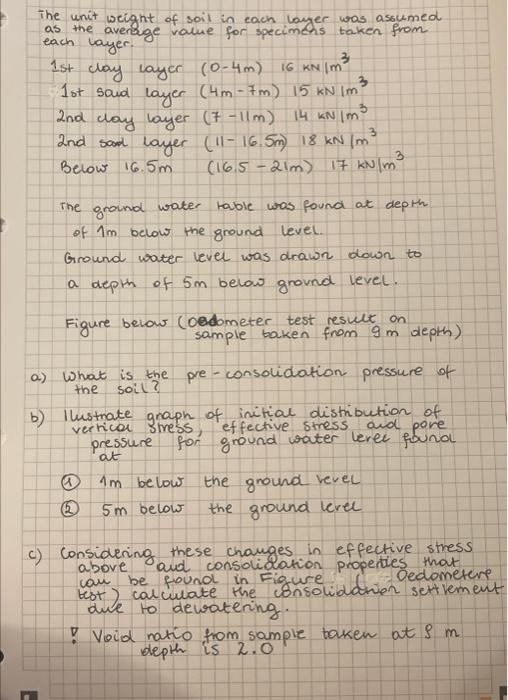 The unit weight of soil in each layer was assumed
as the average value for specimens taken from
each layer.
1st clay layer (0-4m) 16 kN/m³
1st sand layer (4m-7m) 15 kN/m³
2nd clay layer (7-11m) 14 kN/m³
2nd sand layer (11-16.5m) 18 kN/m³
Below 16.5m (16.5-21m) 17 kN/m³
The ground water table was found at depth
of 1m below the ground level.
Ground water level was drawn down to
a depth of 5m below ground level.
Figure below (oedometer test result on
sample taken from 9m depth)
a) What is the pre-consolidation pressure of
the soil?
b) Illustrate graph of initial distribution of
vertical stress, effective stress and pore
pressure for ground water level found
at
① 1m below the ground level
② 5m below the ground level
c) Considering these changes in effective stress
above and consolidation properties that
can be found in Figure ( Oedometere
test) calculate the consolidation settlement
due to dewatering.
! Void ratio from sample taken at 9 m
depth is 2.0